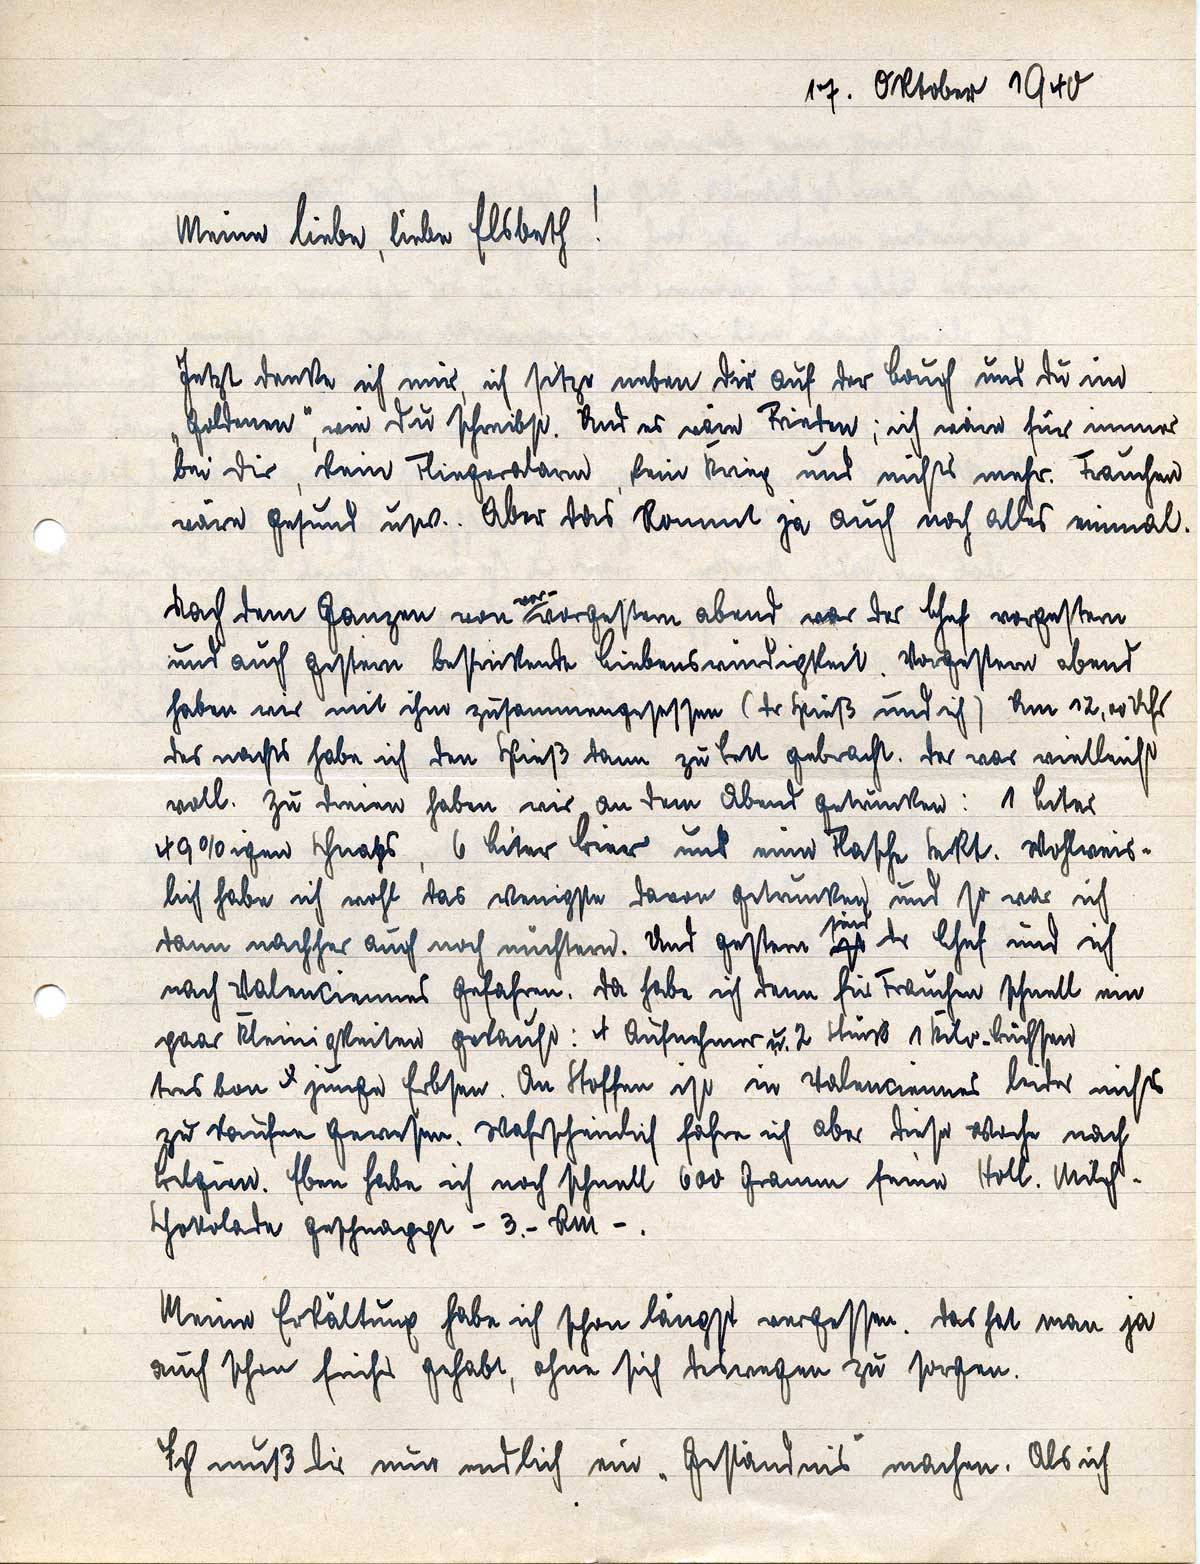 17. Oktober 1940
Meine liebe, liebe Elsbeth!
Jetzt denke ich mir, ich sitze neben Dir auf der Couch und Du im
„Goldenen“, wie Du schreibst. Und es wäre Frieden; ich wäre für immer
bei Dir, kein Fliegeralarm, kein Krieg und nichts mehr. Frauchen
wäre gesund usw.. Aber das kommt ja auch noch alles einmal.
Nach dem Ganzen von vor-vorgestern abend war der Chef vorgestern
und auch gestern bestrickende Liebenswürdigkeit. Vorgestern abend
haben wir mit ihm zusammengesessen (der Spieß und ich) Um 12,00 Uhr
des nachts habe ich den Spieß dann zu Bett gebracht. Der war vielleicht
voll. Zu dreien haben wir an dem Abend getrunken: 1 Liter
49%igen Schnaps, 6 Liter Bier und eine Flasche Sekt. Wohlweis-
lich habe ich wohl das wenigste davon getrunken und so war ich
dann nachher auch noch nüchtern. Und gestern sind der Chef und ich
nach Valenciennes gefahren. Da habe ich denn für Frauchen schnell ein
paar Kleinigkeiten gekauft: 4 Aufnehmer u. 2 Stück 1 Kilo-Büchsen
tres bon junge Erbsen. An Stoffen ist in Valenciennes leider nichts
zu kaufen gewesen. Wahrscheinlich fahre ich aber diese Woche nach
Belgien. Eben habe ich noch schnell 600 Gramm feine Holl. Milch-
schokolade geschnappt - 3.- RM -.
Meine Erkältung habe ich schon längst vergessen. Das hat man ja
auch schon früher gehabt, ohne sich deswegen zu sorgen.
Ich muß Dir nun endlich ein „Geständnis“ machen. Als ich